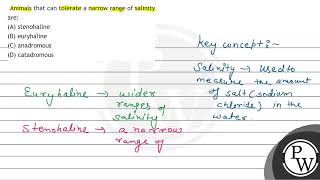 Animals that can tolerate a narrow range of salinity
are:
(A) stenohaline
(B) euryhaline
(C) anadromous
(D) catadromous
Key concept:-
Salinity → Used to
measure the amount
of salt (sodium
chloride) in the
water.
Euryhaline → wider
ranges of
salinity
Stenohaline → a narrow
range of
PW